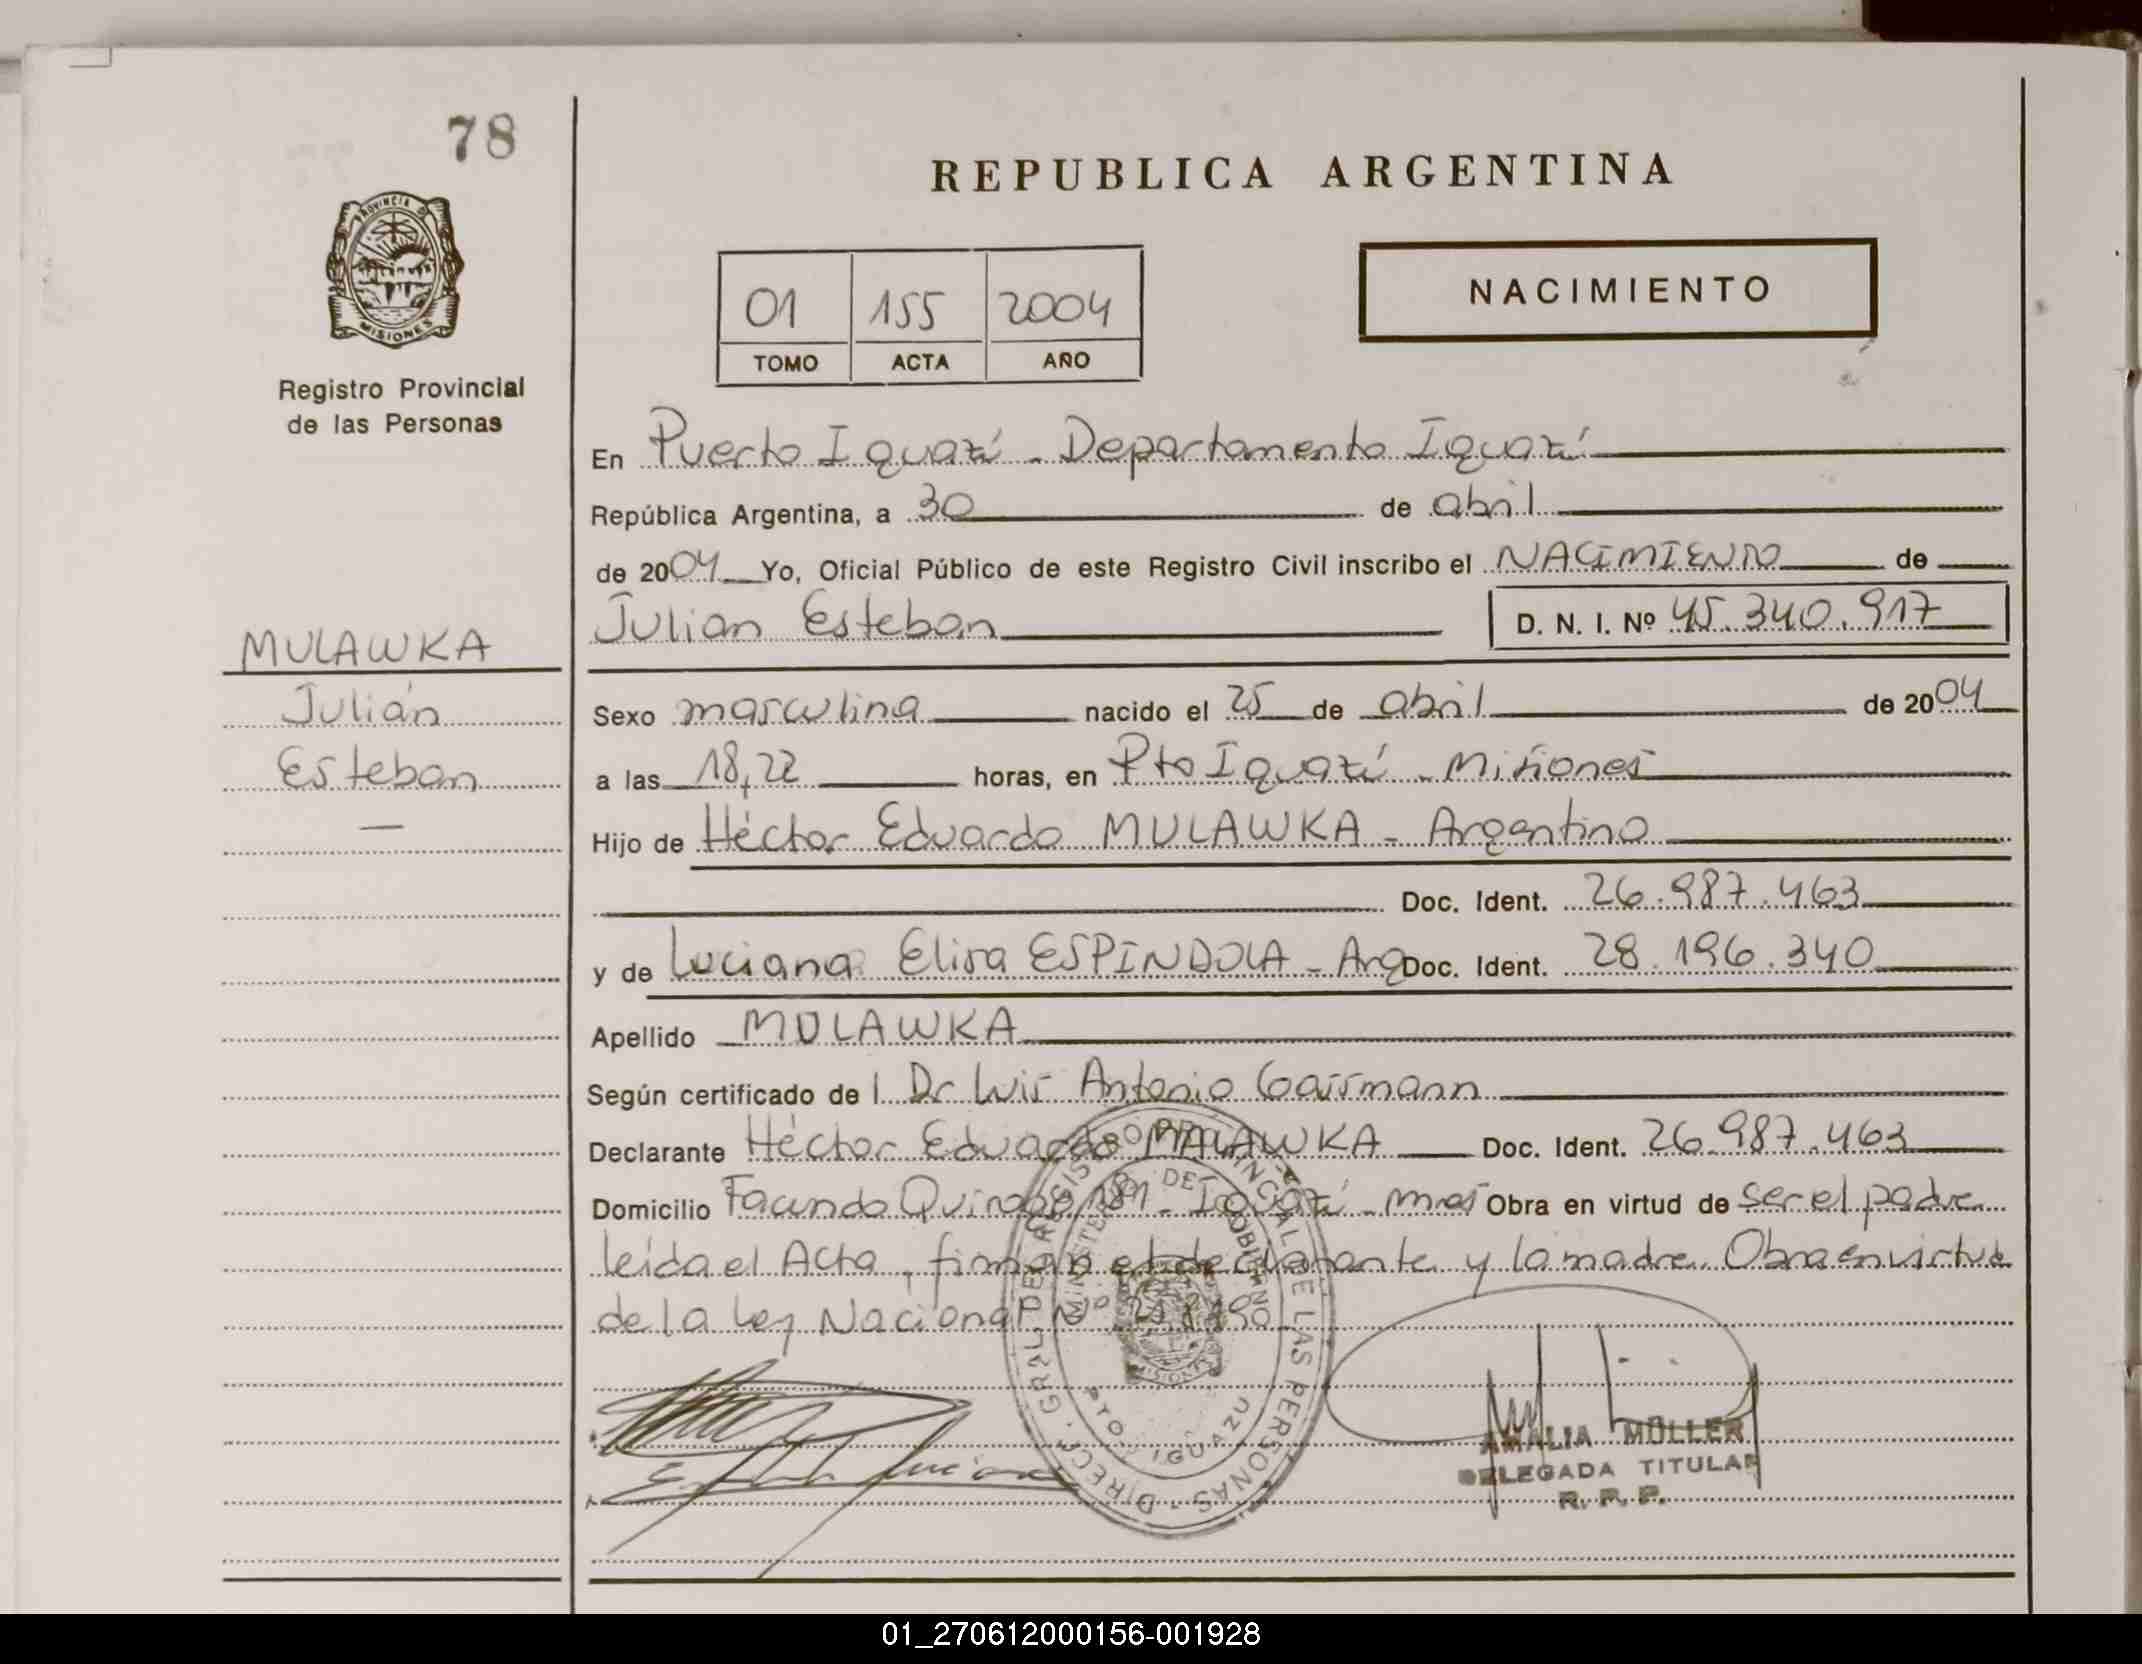 78
REPUBLICA ARGENTINA
PROVINCIA DE
MISIONES
NACIMIENTO
01 155 2004
TOMO ACTA AÑO
Registro Provincial
de las Personas
En Puerto Iguazú - Departamento Iguazú
República Argentina, a 30 de abril
de 2004 Yo, Oficial Público de este Registro Civil inscribo el NACIMIENTO de
Julian Esteban D. N. I. Nº 45.340.917
MULAWKA
Julián
Esteban
—
Sexo masculina nacido el 25 de abril de 2004
a las 18,22 horas, en Pto Iguazú - Misiones
Hijo de Héctor Eduardo MULAWKA - Argentino
Doc. Ident. 26.987.463
y de Luciana Elisa ESPINDOLA - Arg Doc. Ident. 28.196.340
Apellido MULAWKA
Según certificado de l Dr Luis Antonio Gassmann
Declarante Héctor Eduardo MALAWKA Doc. Ident. 26.987.463
Domicilio Facundo Quiroga 181 - Iguazú - Mnes Obra en virtud de ser el padre
leída el Acta, firman el declarante y la madre. Obra en virtud
de la Ley Nacional Nº
DIRECC. GRAL. DE REGISTRO PROVINCIAL DE LAS PERSONAS
MINISTERIO DE GOBIERNO
MISIONES
PTO. IGUAZU
AMALIA MÜLLER
DELEGADA TITULAR
R. P. P.
01_270612000156-001928